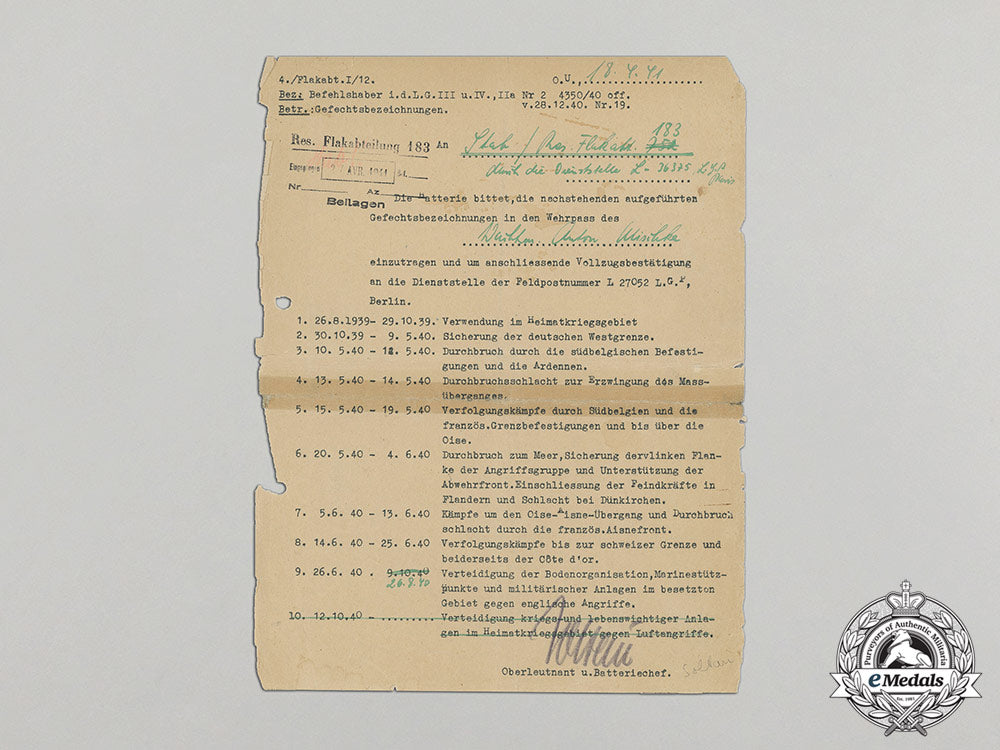 4./Flakabt.I/12. O.U., 18.4.41
Bez: Befehlshaber i.d.L.G.III u.IV.,IIa Nr 2 4350/40 off.
v.28.12.40. Nr.19.
Betr.:Gefechtsbezeichnungen.
183
Res. Flakabteilung 183 An Stab / Res. Flakabt.
Eingegangen 2 APR. 1941
durch die Dienststelle L - 36375 L.G.P
Paris
Nr. Az
Beilagen
Die Batterie bittet,die nachstehenden aufgeführten
Gefechtsbezeichnungen in den Wehrpass des
Wachtm. Anton Mischke
einzutragen und um anschliessende Vollzugsbestätigung
an die Dienststelle der Feldpostnummer L 27052 L.G.P,
Berlin.
1. 26.8.1939- 29.10.39. Verwendung im Heimatkriegsgebiet
2. 30.10.39 - 9. 5.40. Sicherung der deutschen Westgrenze.
3. 10. 5.40 - 12. 5.40. Durchbruch durch die südbelgischen Befesti-
gungen und die Ardennen.
4. 13. 5.40 - 14. 5.40 Durchbruchsschlacht zur Erzwingung des Mass-
überganges.
5. 15. 5.40 - 19. 5.40 Verfolgungskämpfe durch Südbelgien und die
französ.Grenzbefestigungen und bis über die
Oise.
6. 20. 5.40 - 4. 6.40 Durchbruch zum Meer,Sicherung dervlinken Flan-
ke der Angriffsgruppe und Unterstützung der
Abwehrfront.Einschliessung der Feindkräfte in
Flandern und Schlacht bei Dünkirchen.
7. 5.6. 40 - 13. 6.40 Kämpfe um den Oise-Aisne-Übergang und Durchbruch
schlacht durch die französ.Aisnefront.
8. 14.6. 40 - 25. 6.40 Verfolgungskämpfe bis zur schweizer Grenze und
beiderseits der Côte d'or.
9. 26.6. 40 . 9.10.40 Verteidigung der Bodenorganisation,Marinestütz-
26.8.40 punkte und militärischer Anlagen im besetzton
Gebiet gegen englische Angriffe.
10. 12.10.40 - ........ Verteidigung kriegs-und lebenswichtiger Anla-
gen im Heimatkriegsgebiet gegen Luftangriffe.
Oberleutnant u.Batteriechef.
Purveyors of Authentic Militaria
eMedals
Est. 1985